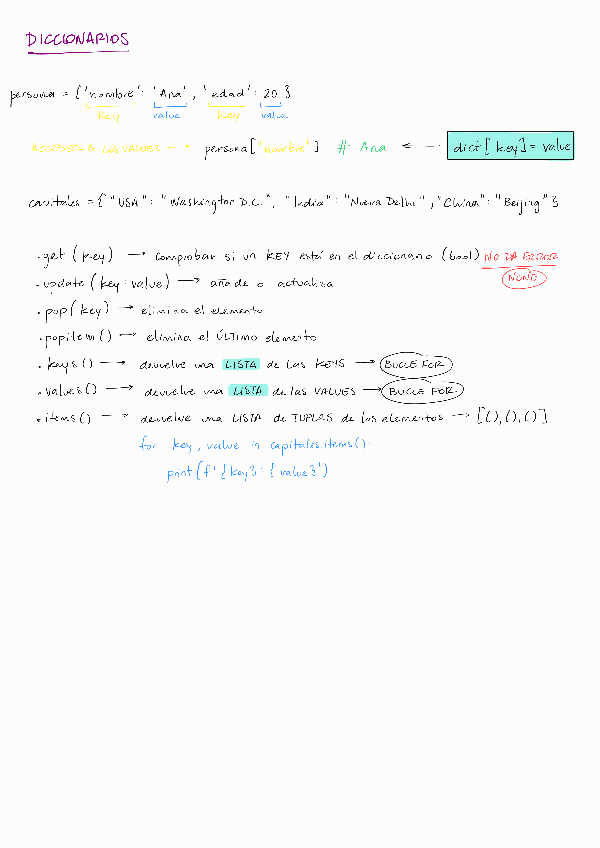 DICCIONARIOS
persona = {'nombre': 'Ana', 'edad': 20}
key value key value
ACCEDER A LOS VALUES → persona['nombre'] # Ana ← dict[key] = value
capitales = {"USA": "Washington D.C.", "India": "Nueva Delhi", "China": "Beijing"}
.get(key) → comprobar si un KEY está en el diccionario (bool) NO DA ERROR
NONE
.update(key:value) → añade o actualiza
.pop(key) → elimina el elemento
.popitem() → elimina el ÚLTIMO elemento
.keys() → devuelve una LISTA de las KEYS → BUCLE FOR
.values() → devuelve una LISTA de las VALUES → BUCLE FOR
.items() → devuelve una LISTA de TUPLAS de los elementos → [(), (), ()]
for key, value in capitales.items():
print(f'{key}: {value}')